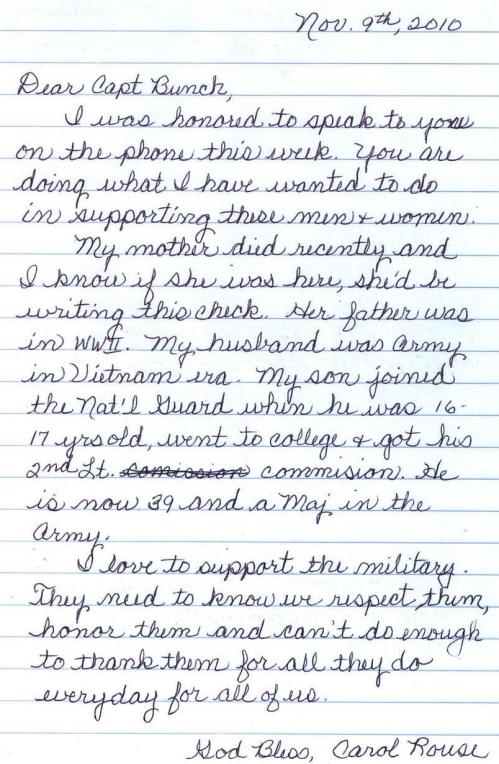 Nov. 9th, 2010
Dear Capt Bunch,
I was honored to speak to you
on the phone this week. You are
doing what I have wanted to do
in supporting these men + women.
My mother died recently and
I know if she was here, she'd be
writing this check. Her father was
in WWII. My husband was Army
in Vietnam era. My son joined
the Nat'l Guard when he was 16-
17 yrs old, went to college & got his
2nd Lt. comission commision. He
is now 39 and a Maj in the
Army.
I love to support the military.
They need to know we respect them,
honor them and can't do enough
to thank them for all they do
everyday for all of us.
God Bless, Carol Rouse